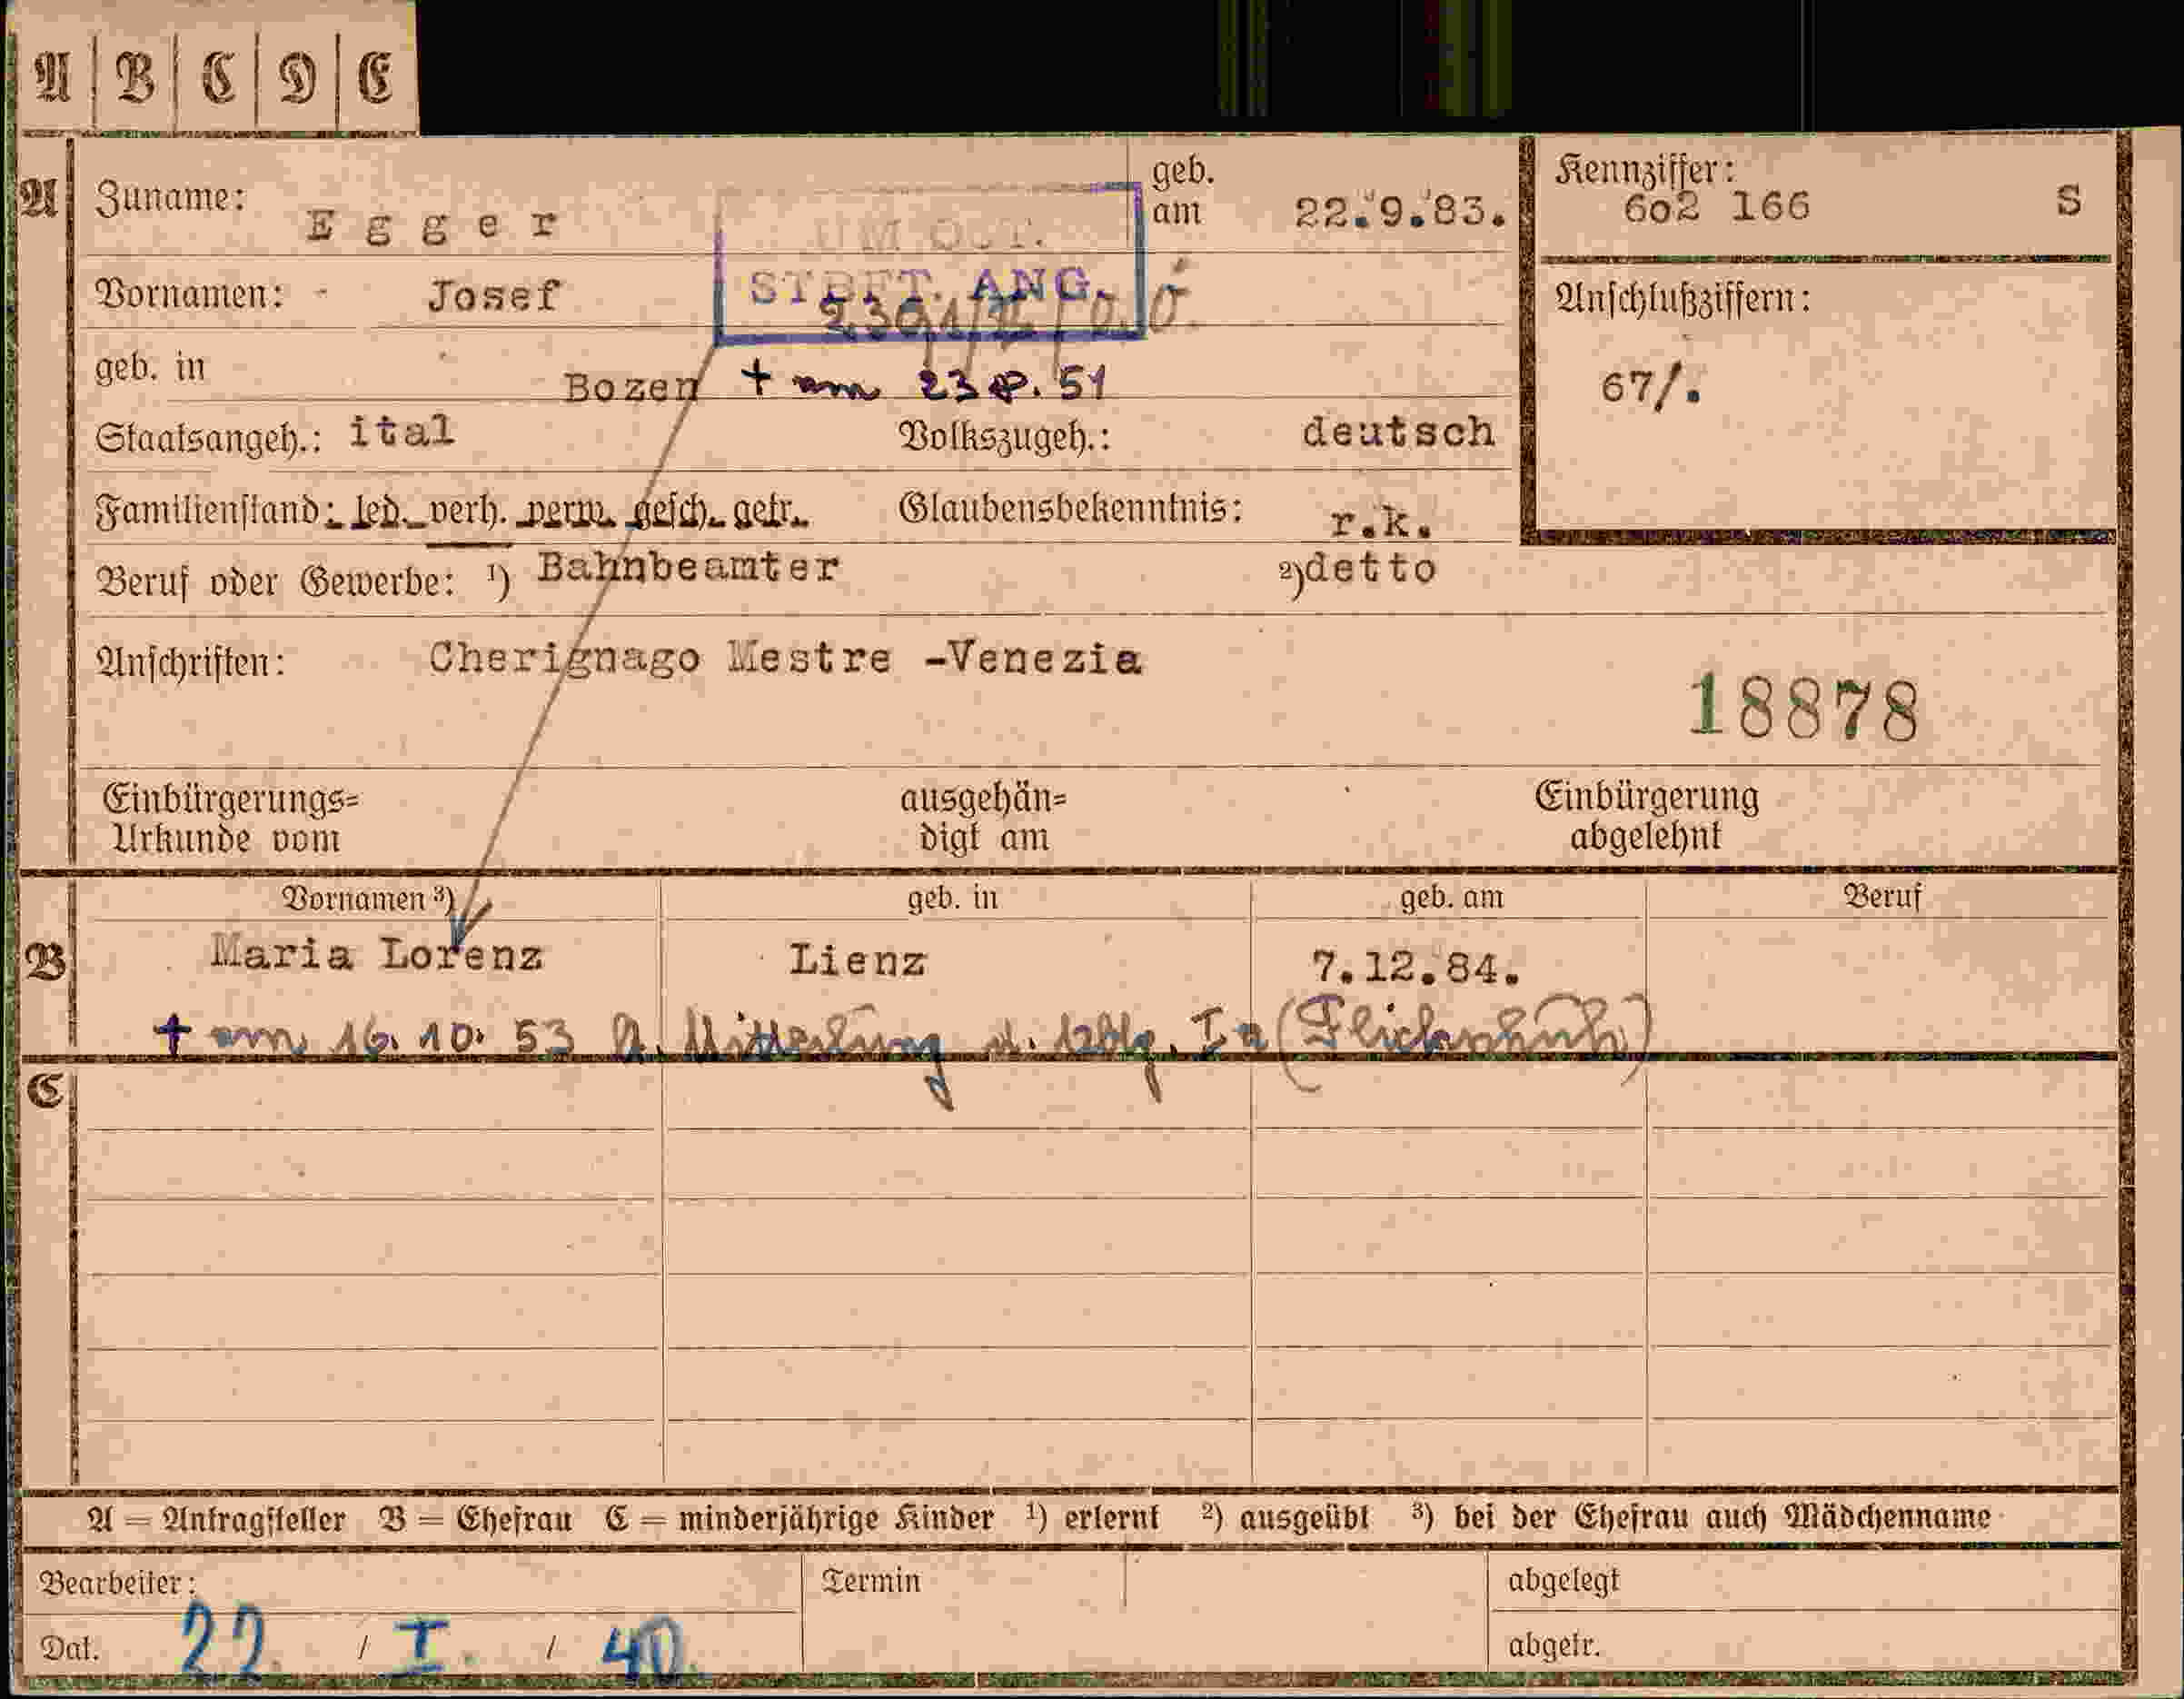 A B C D E
A Zuname: Egger geb. am 22.9.83. Kennziffer: 602 166 S
UM OST.
Vornamen: - Josef STBFT. ANG. Anschlußziffern:
geb. in Bozen + am 23 8. 51 67/.
Staatsangeh.: ital Volkszugeh.: deutsch
Familienstand: led. verh. verw. gesch. getr. Glaubensbekenntnis: r.k.
Beruf oder Gewerbe: ¹) Bahnbeamter ²) detto
Anschriften: Cherignago Mestre -Venezia
18878
Einbürgerungs= ausgehän= Einbürgerung
Urkunde vom digt am abgelehnt
Vornamen ³) geb. in geb. am Beruf
B Maria Lorenz Lienz 7.12.84.
+ am 16. 10. 53 lt. Mitteilung d.
C
A = Antragsteller B = Ehefrau C = minderjährige Kinder ¹) erlernt ²) ausgeübt ³) bei der Ehefrau auch Mädchenname
Bearbeiter: Termin abgelegt
Dat. 22. / I. / 40. abgetr.